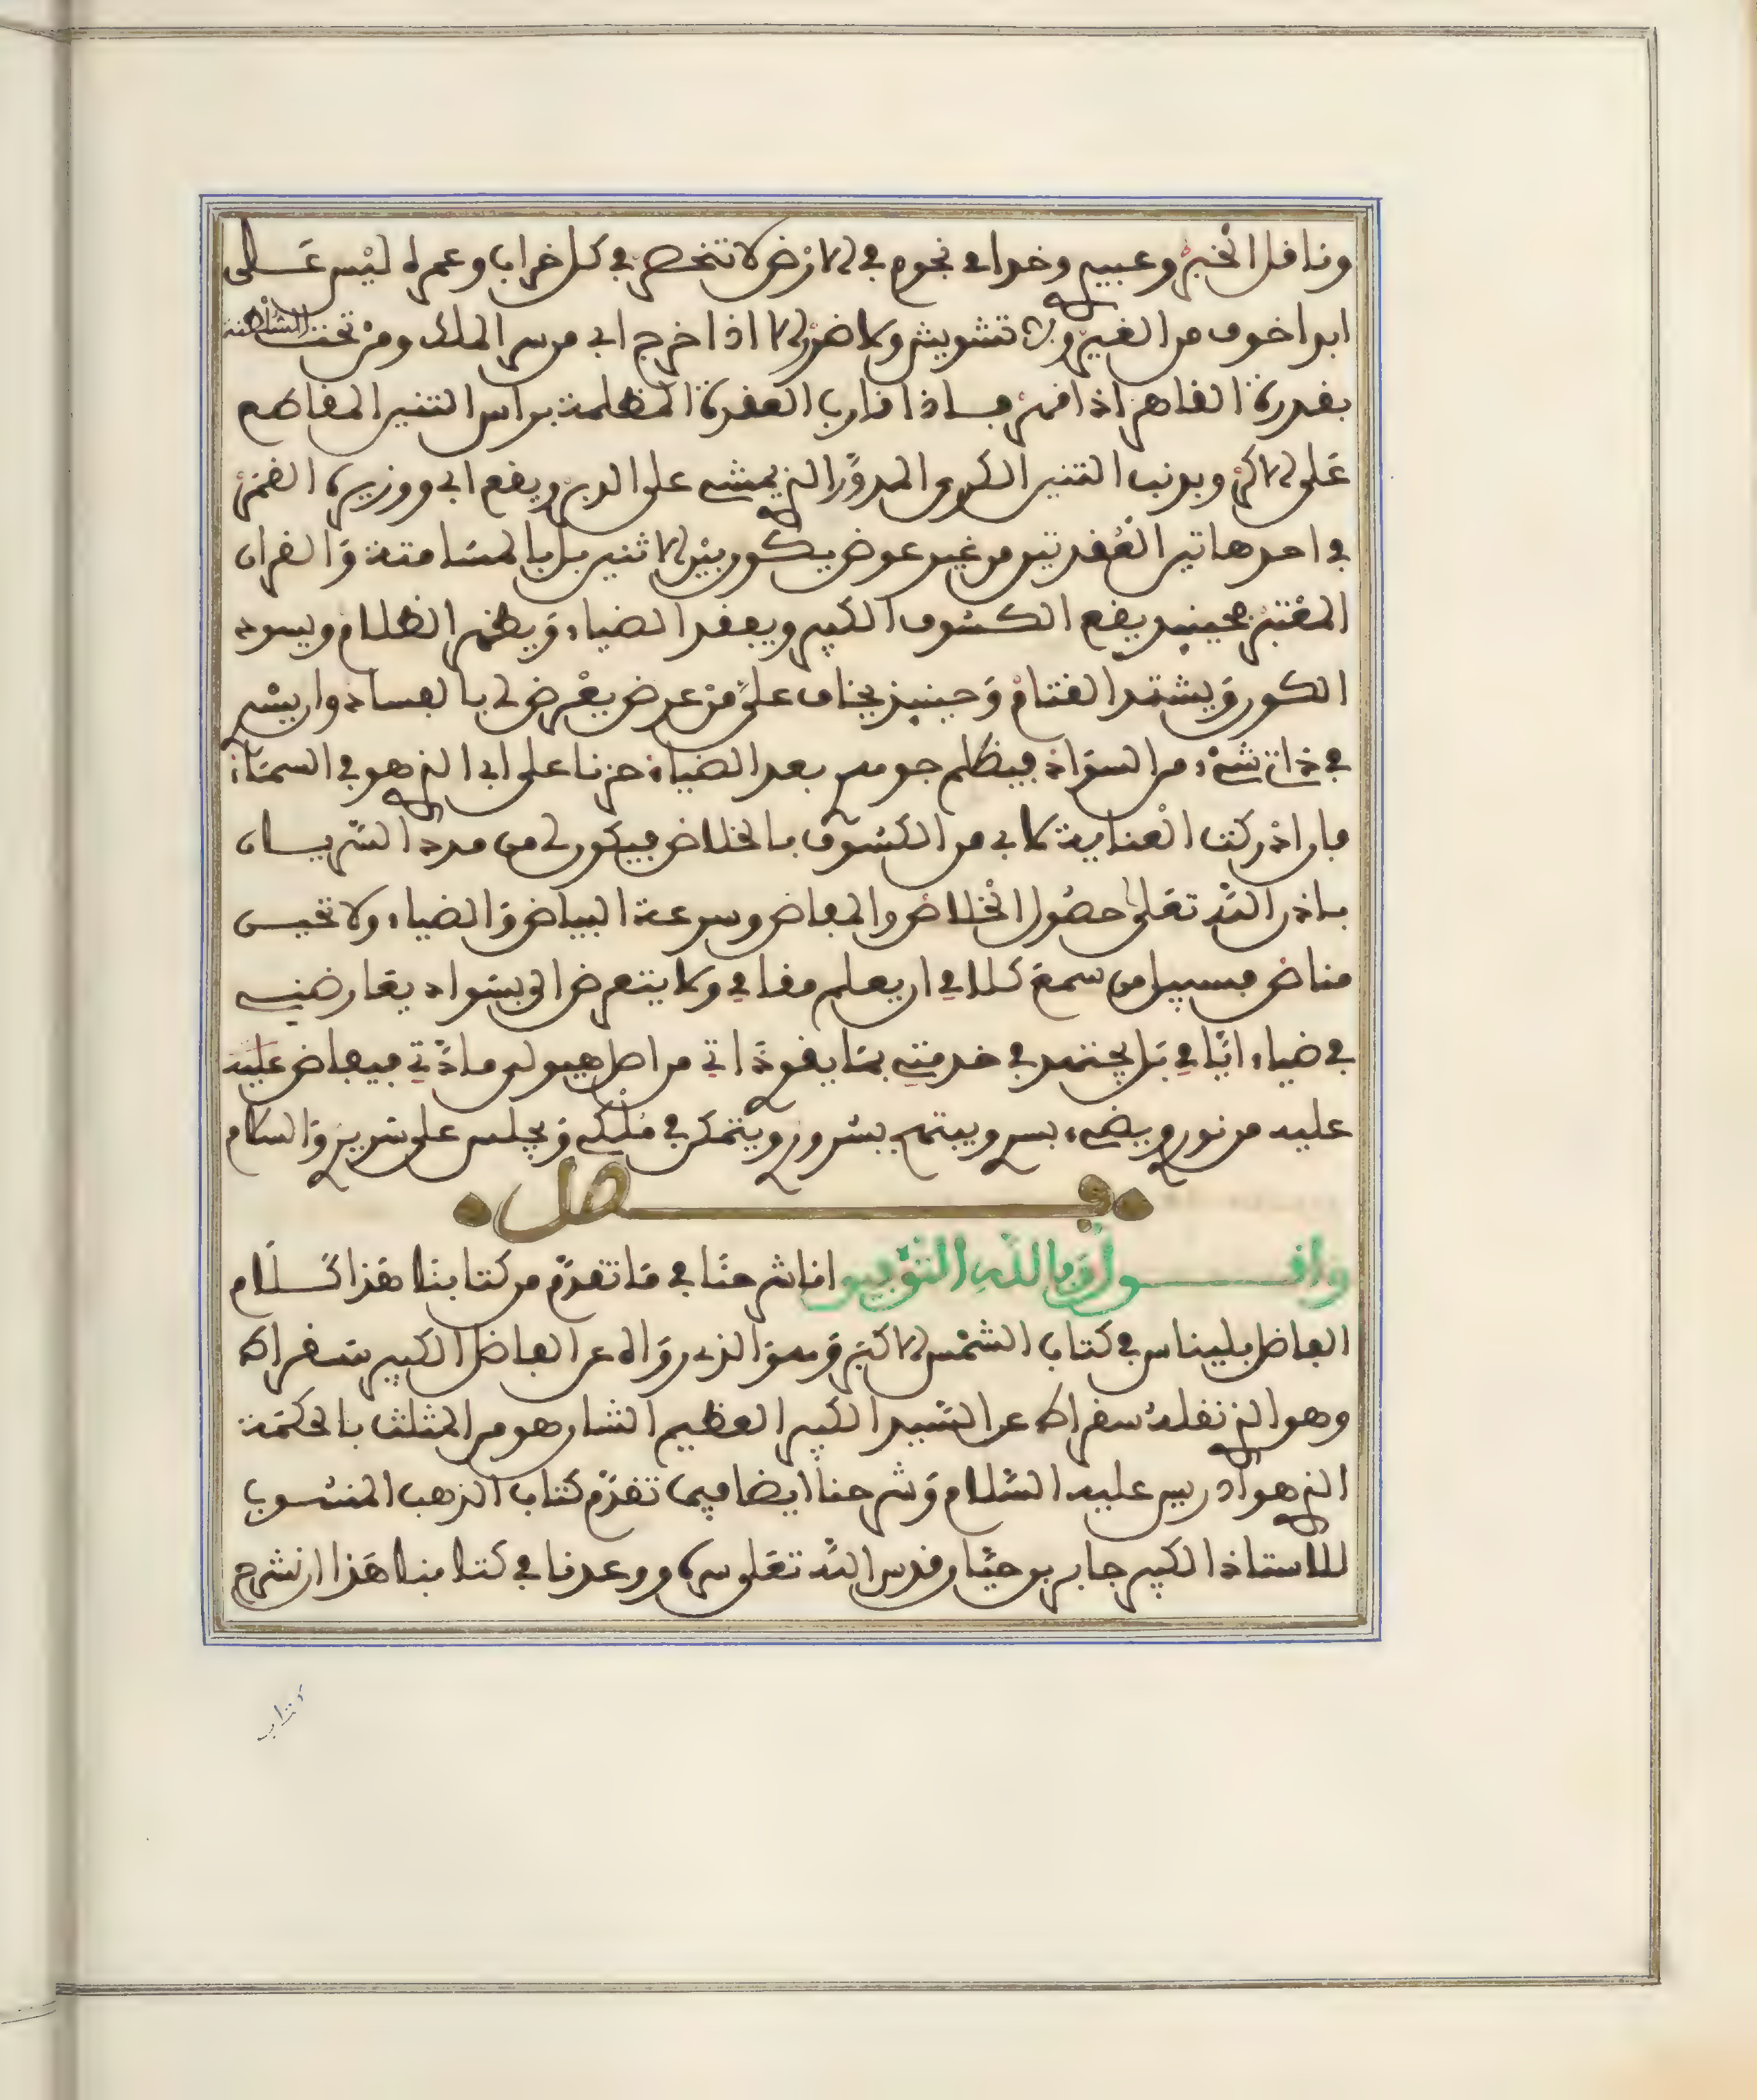 وناقل الخبز وعبيد وخدامي نجوم في الارض لا تنحصر في كل خراب وعمرا ليس على
ابدا خوف من الغير ولا تشويش ولا ضرر الا اذا خرج ابي من سر الملك ومن تحت السلطنة
بقدرة القاهر اذا قهر فاذا قارب العقدة المظلمة براس التنين المقاطع
على الاكر وبذنب التنين الكري المدور الذي يمشي على الدين ويقع ابي ووزيره القمر
في احد هاتين العقدتين من غير عوض يكون بين الاثنين بل بالمسامتة والقران
المقتبر فحينيذ يقع الكسوف الكبير ويفقد الضياء ويظهر الظلام ويسود
الكون ويشتد القتام وحينيذ يخاف علي من عرض يعرض لي بالفساد وان يسر
في ذاتي شيء من السواد فيظلم جوهر بعد الضياء حزنا على ابي الذي هو في السماء
فان ادركت العناية لابي من الكسوف بالخلاص فيكون لي من مدد السريان
باذن الله تعلى حصول الخلاص والمفاض وسرعة البياض والضياء ولا تحيس
مناص فسبيل من سمع كلامي ان يعلم مقامي ولا يتعرض الي بسواد يعارضني
في ضياء ايامي بل يجتهد في خدمتي بما يقوي ذاتي من اصل هيولى مادتي فيفاض عليه
عليه من نوري ويضيء بسر ويبتهج بسروري ويتمكن في ملكي ويجلس على سريري والسلام
فصل
واقول وبالله التوفيق انا شرحنا في ما تقدم من كتابنا هذا كلام
الفاضل بليناس في كتاب الشمس الاكبر وهو الذي رواه عن الفاضل الكبير سقراط
وهو الذي نقله سقراط عن السيد الكبير العظيم الشان هو من المثلث بالحكمة
الذي هو ادريس عليه السلام وشرحنا ايضا فيما تقدم كتاب الذهب المنسوب
للاستاذ الكبير جابر بن حيان قدس الله تعلى سره ووعدنا في كتابنا هذا ان نشرح
كتاب